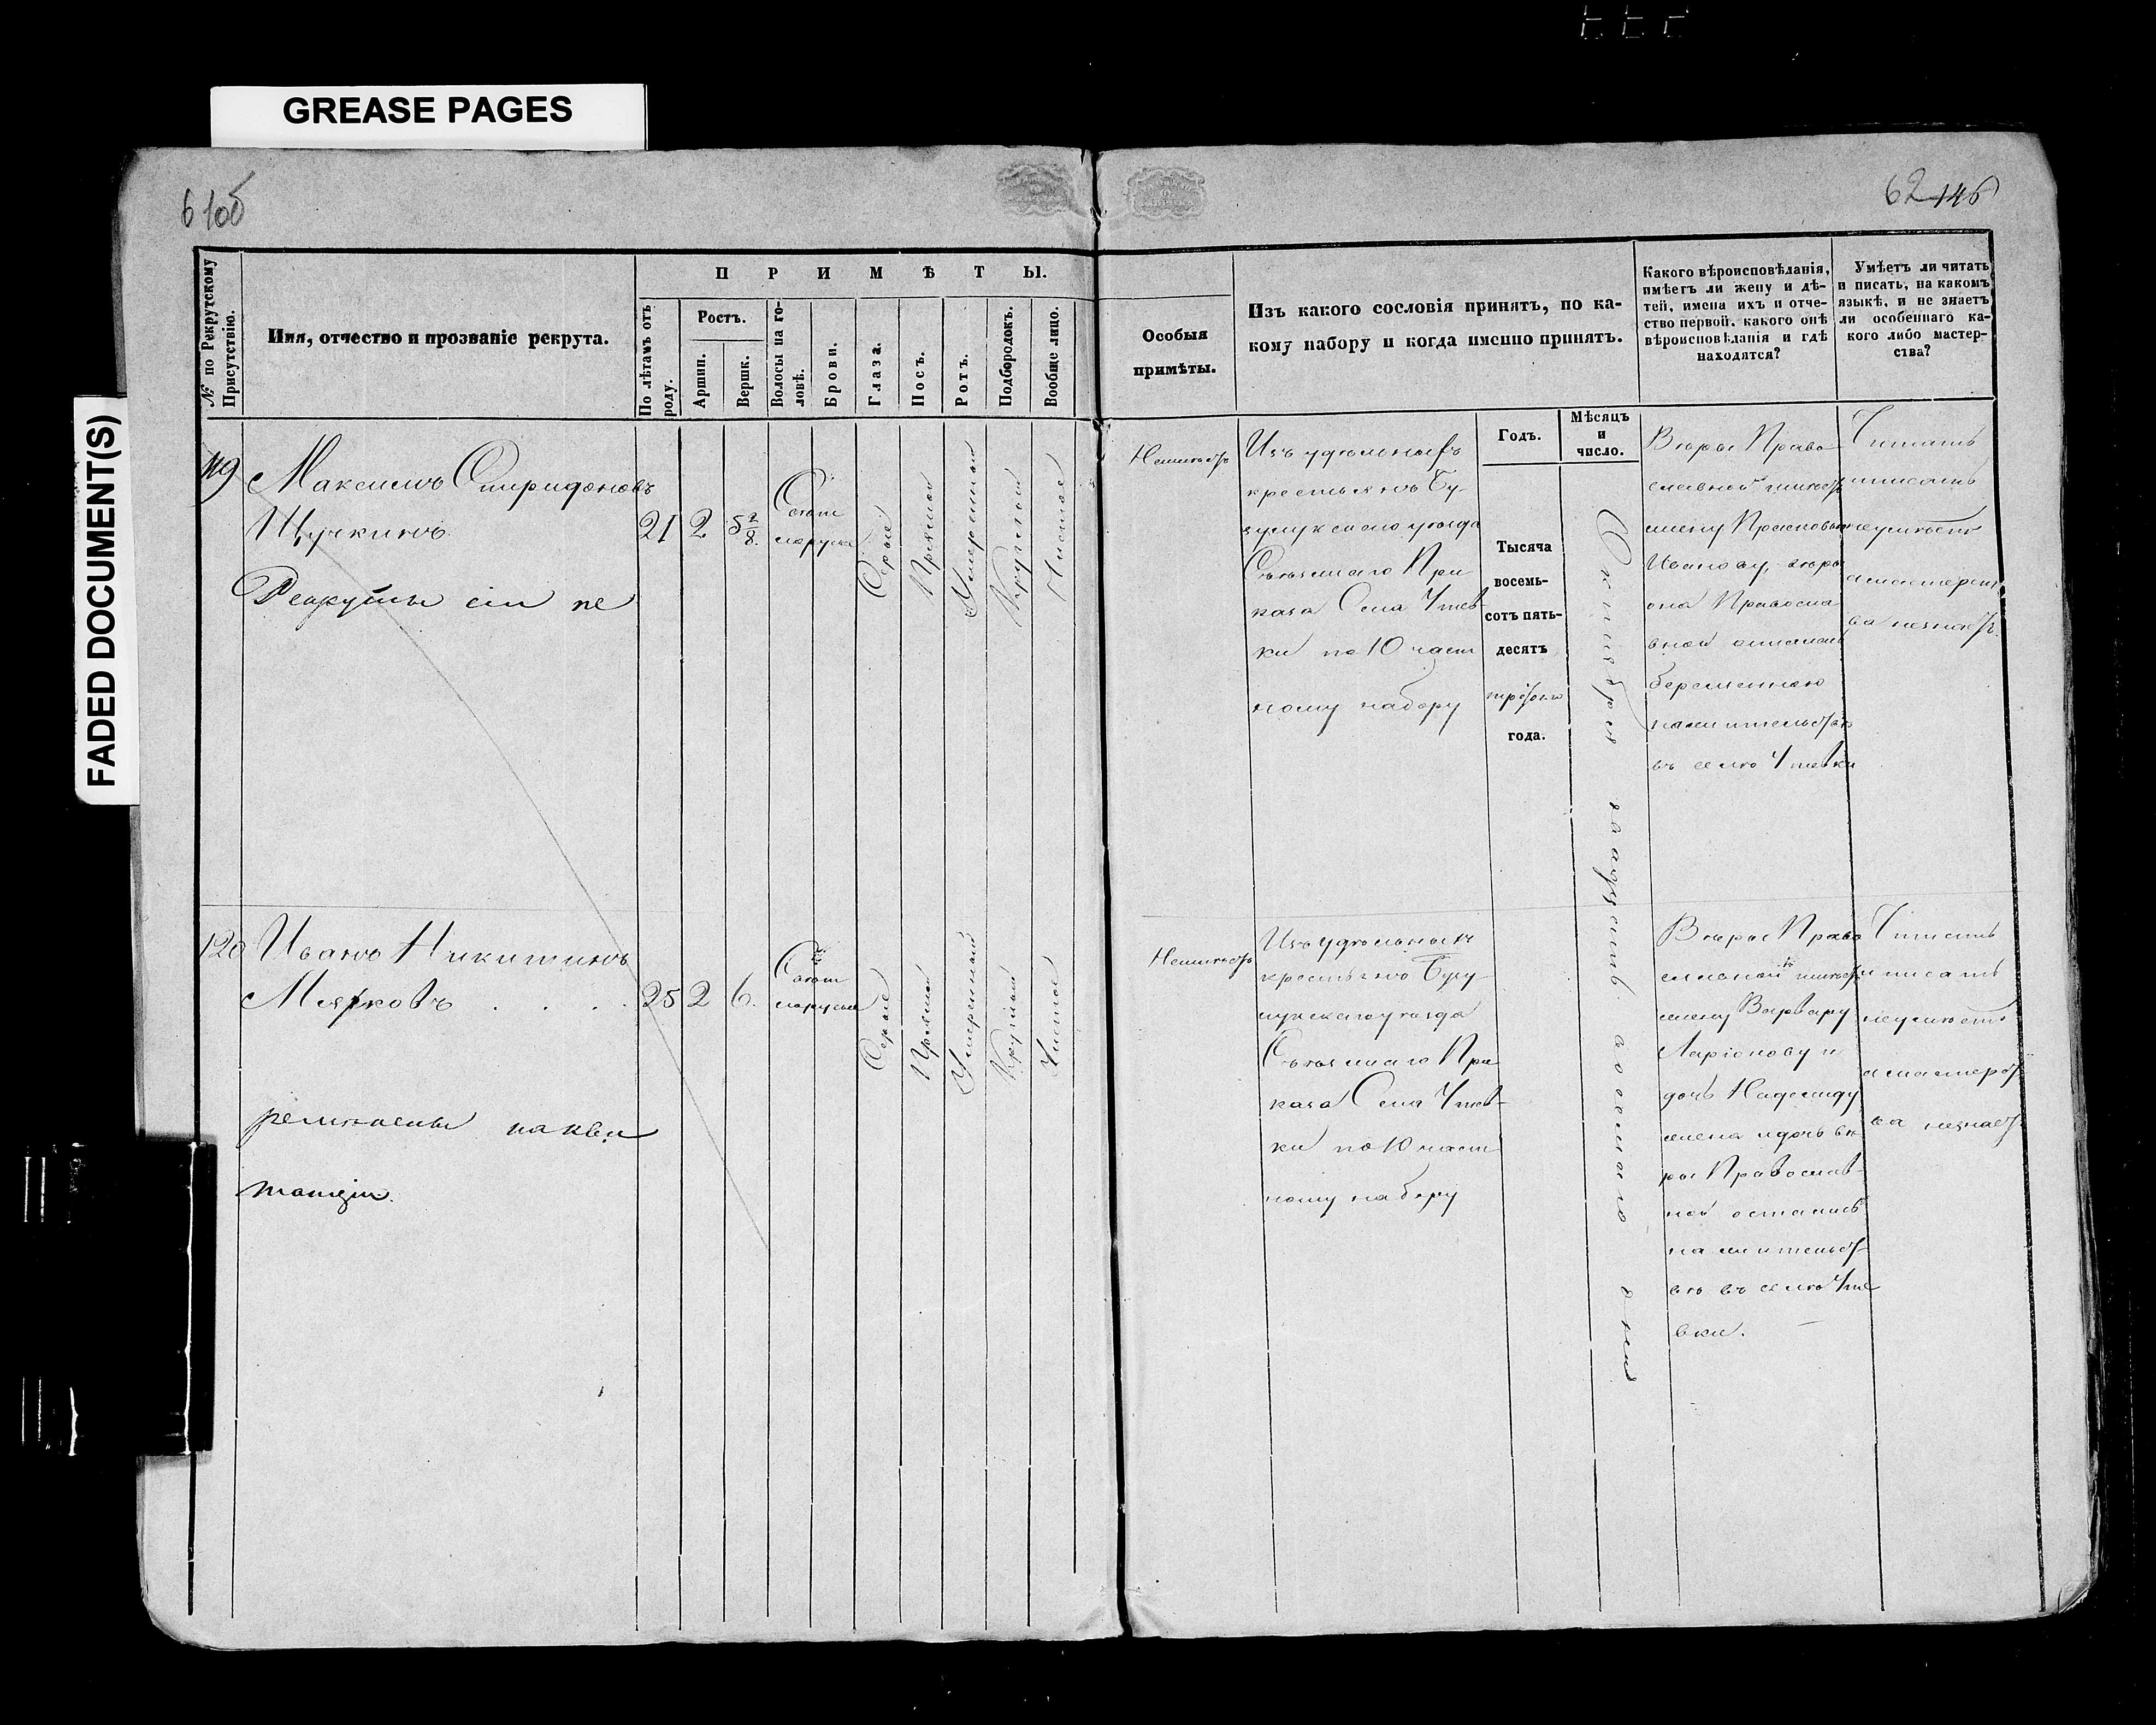 GREASE PAGES
FADED DOCUMENT(S)
61об
62 146
№ по Рекрутскому Присутствію.
Имя, отчество и прозваніе рекрута.
ПРИМѢТЫ.
По лѣтамъ отъ роду.
Ростъ.
Аршин.
Вершк.
Волосы на головѣ.
Брови.
Глаза.
Носъ.
Ротъ.
Подбородокъ.
Вообще лицо.
Особыя
примѣты.
Изъ какого сословія принятъ, по ка-
кому набору и когда именно принятъ.
Годъ.
Мѣсяцъ
и
число.
Какого вѣроисповѣданія,
имѣетъ ли жену и дѣ-
тей, имена ихъ и отче-
ство первой, какого онѣ
вѣроисповѣданія и гдѣ
находятся?
Умѣетъ ли читать
и писать, на какомъ
языкѣ, и не знаетъ
ли особеннаго ка-
кого либо мастер-
ства?
119
Максимъ Спиридоновъ
Щучкинъ
21 2 5 2/8
Свѣтло
русые
Сѣрые
Прямой
Умеренный
Круглой
Чистое
Рекруты сіи не
Изъ удѣльныхъ
крестьянъ Бу-
зулукскаго уѣзда
Съѣзжаго При
каза Села Утев-
ки по 10 част
ному набору
Тысяча
восемь-
сотъ пять-
десятъ
третьяго
года.
Октября двадцать осьмаго дня
Вѣры Право
славной имѣетъ
жену Прасковью
Иванову, вѣры
она Правосла
вной
беременною
на жительствѣ
въ селѣ Утевки
Читать
писать
неумѣетъ
а мастерст
ва незнаетъ.
120
Иванъ Никитинъ
Мярковъ
25 2 6.
Свѣтло
русые
Сѣрые
Прямой
Умеренный
Круглый
Чистое
ремѣнены на кви
танціи.
Изъ удѣльныхъ
крестьянъ Бузу-
лукскаго уѣзда
Съѣзжаго При
каза Села Утев-
ки по 10 част
ному набору
Вѣры Право
славной имѣетъ
жену Варвару
Ларіонову и
дочь Надежду
жена и дочь вѣ
ры Православ-
ной остались
на жительст-
вѣ въ селѣ Уте
вки.
Читать
и писать
неумѣетъ
а мастерст
ва незнаетъ.